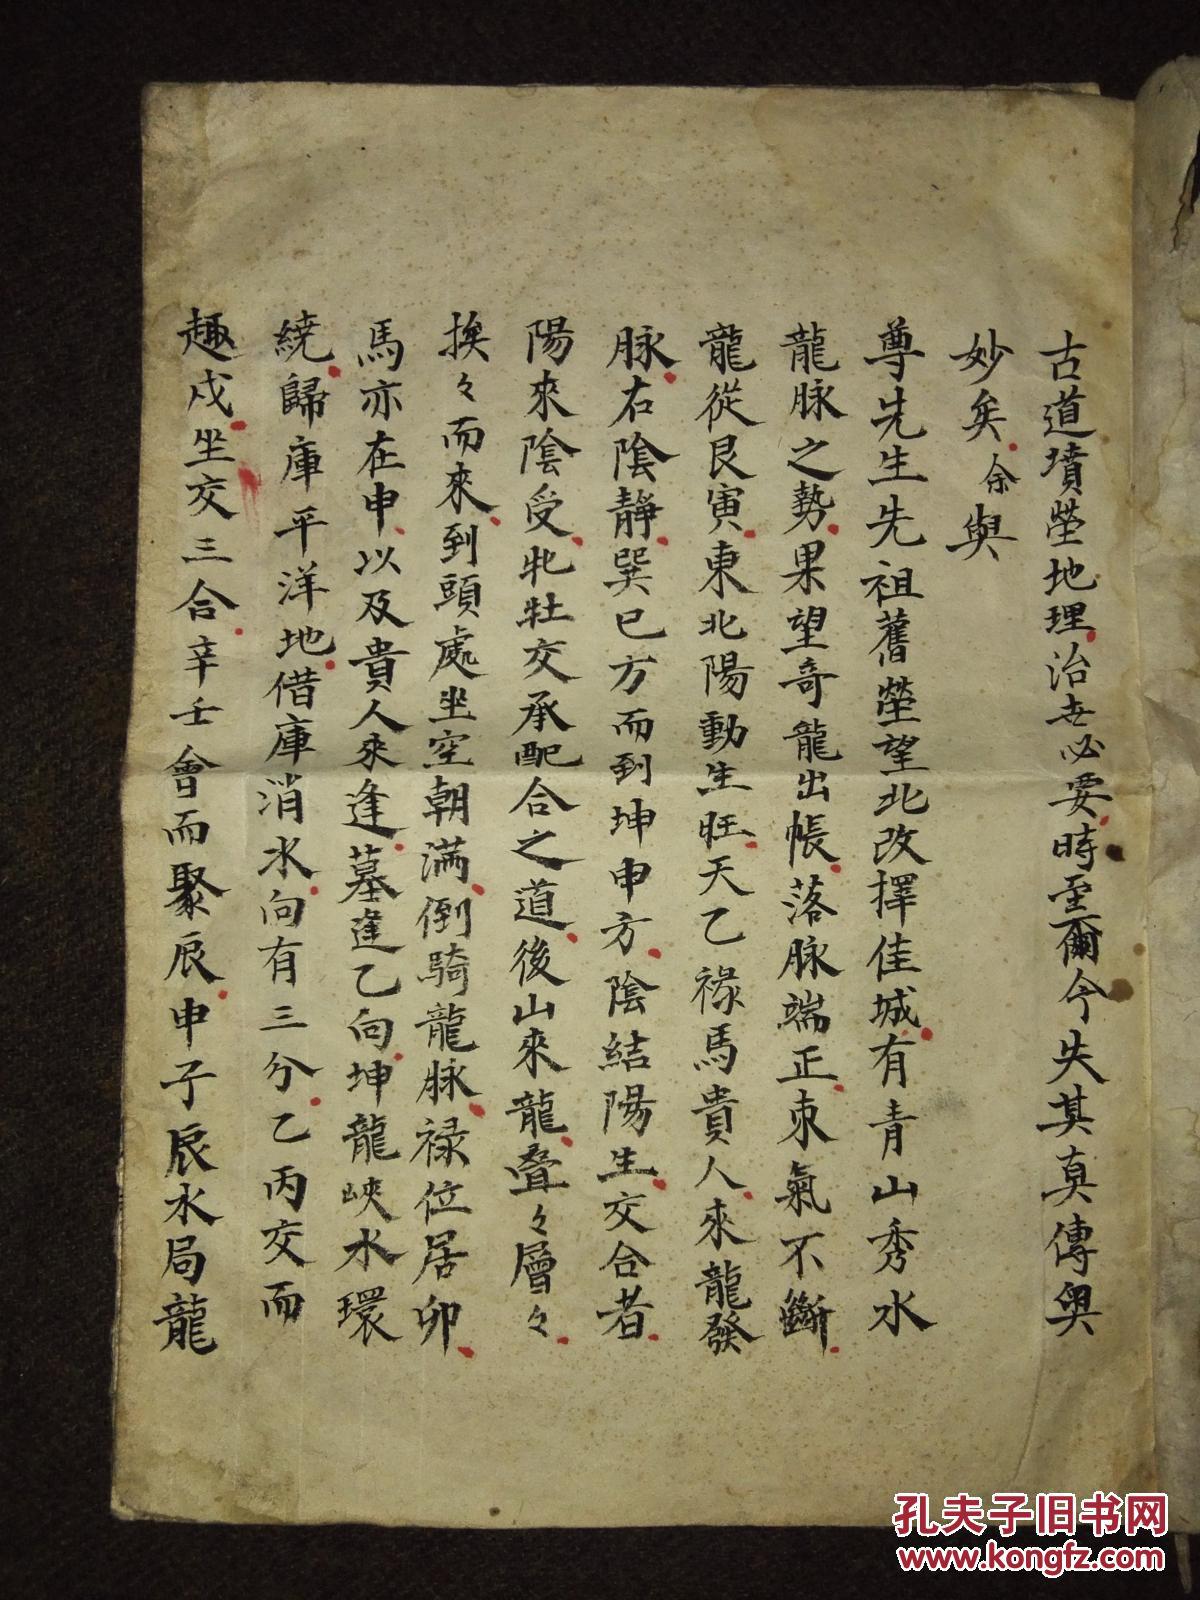 古道墳塋地理治世必要時至爾今失其真傳奥
妙矣余與
尊先生先祖舊塋望北改擇佳城有青山秀水
龍脉之勢果望奇龍出帳落脉端正朿氣不斷
龍從艮寅東北陽動生旺天乙祿馬貴人來龍發
脉右陰靜巽巳方而到坤申方陰結陽生交合者
陽來陰受牝牡交承配合之道後山來龍叠々層々
挨々而來到頭處坐空朝滿倒騎龍脉禄位居卯
馬亦在申以及貴人來逢墓逢乙向坤龍峽水環
繞歸庫平洋地借庫消水向有三分乙丙交而
趣戍坐交三合辛壬會而聚辰申子辰水局龍
孔夫子旧书网
www.kongfz.com